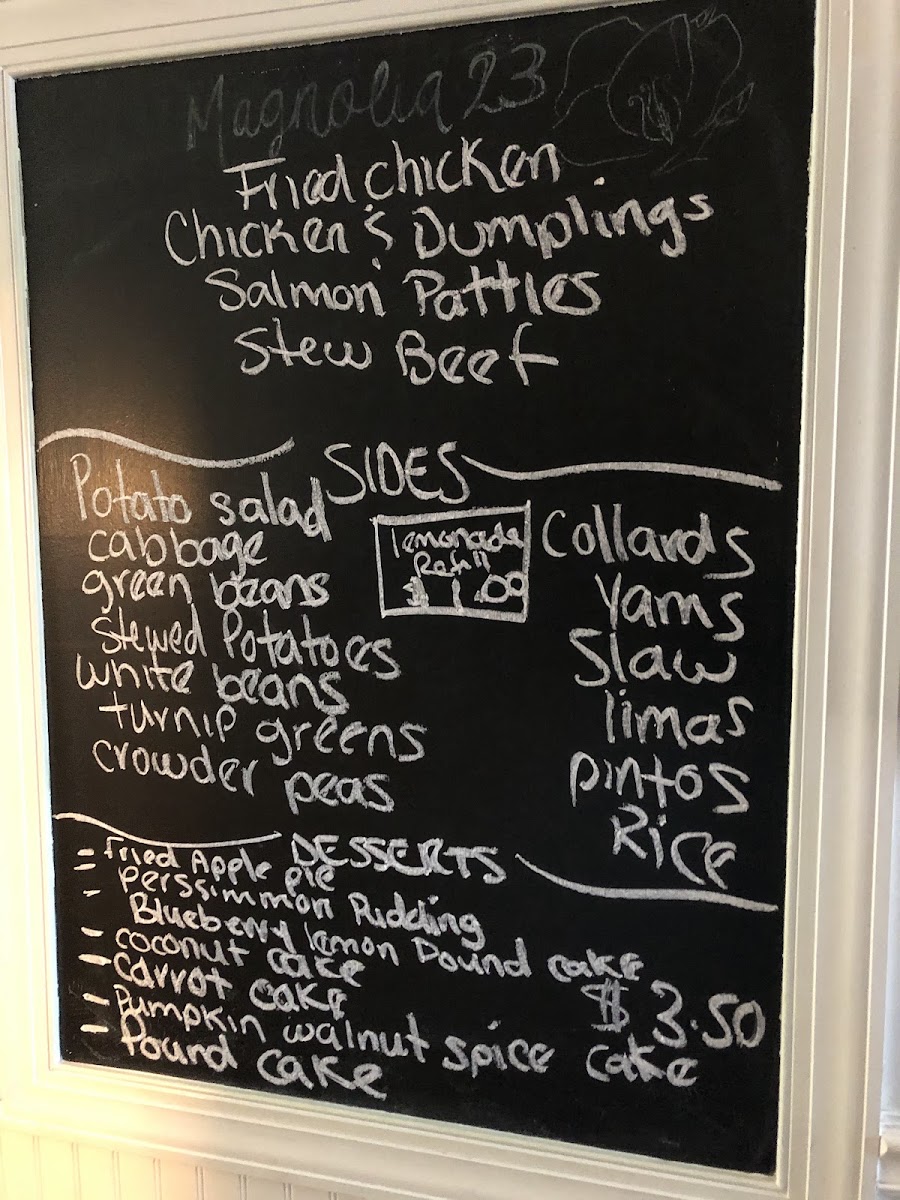 Magnolia 23
Fried chicken
Chicken & Dumplings
Salmon Patties
Stew Beef
SIDES
Potato salad
cabbage
green beans
stewed Potatoes
white beans
turnip greens
crowder peas
lemonade
Refill
$1.00
Collards
Yams
Slaw
limas
pintos
Rice
DESSERTS
- Fried Apple pie
- perssimmon Pudding
- Blueberry lemon Pound cake
- coconut cake
- carrot cake
- Pumpkin walnut spice cake
- Pound cake
$3.50